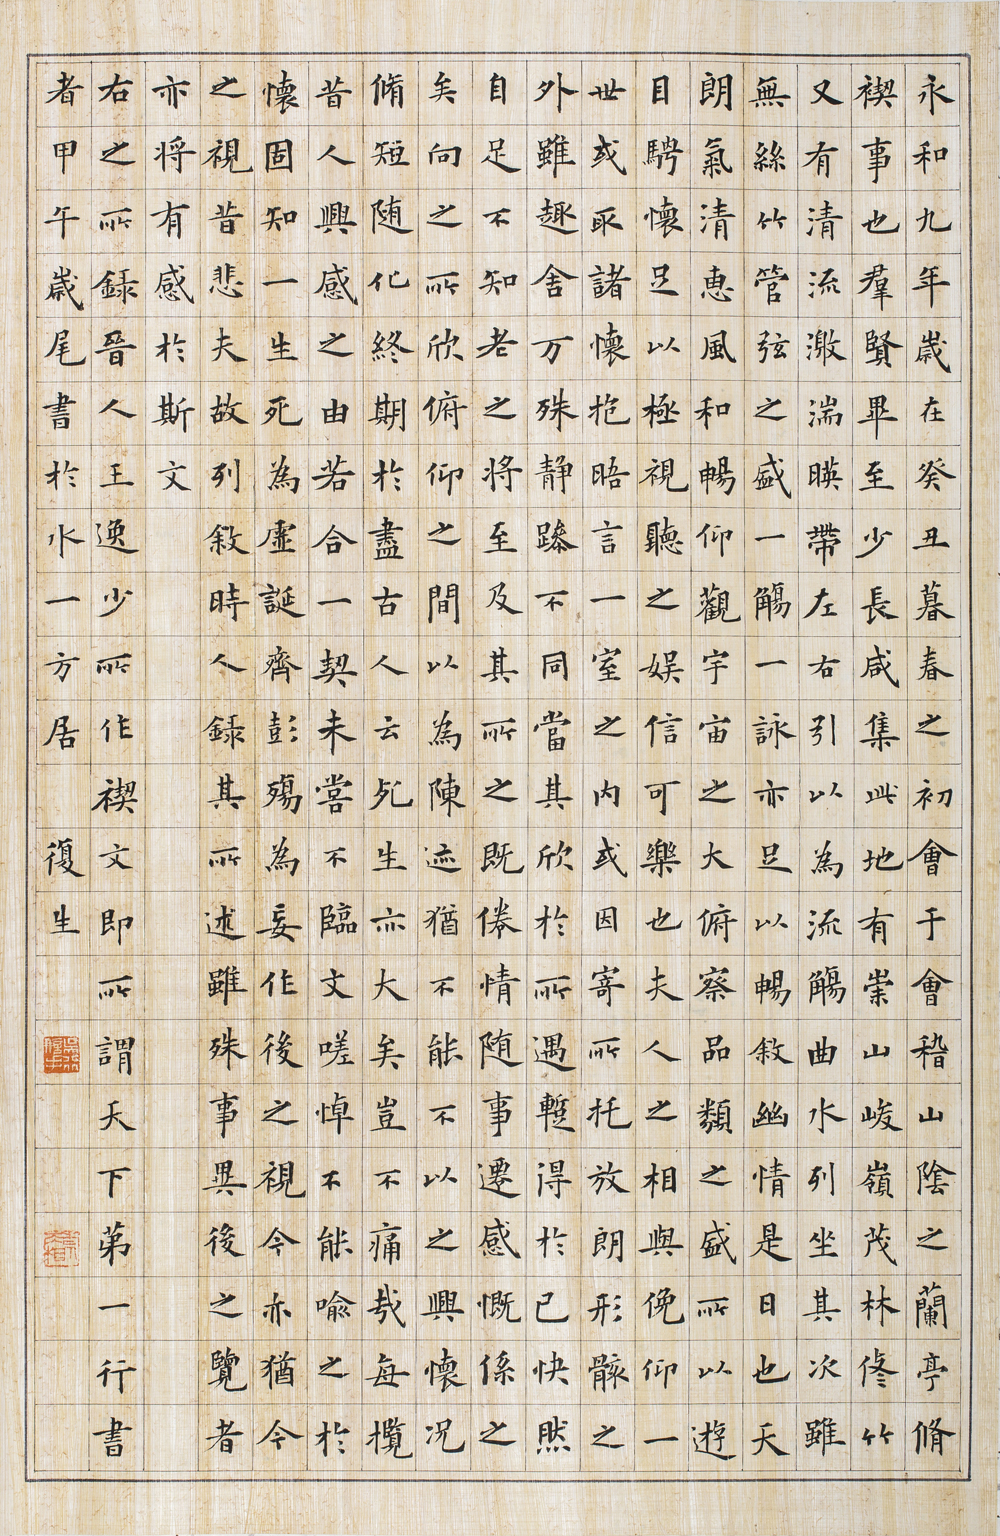 永和九年歲在癸丑暮春之初會于會稽山陰之蘭亭脩
禊事也羣賢畢至少長咸集此地有崇山峻嶺茂林修竹
又有清流激湍暎帶左右引以為流觴曲水列坐其次雖
無絲竹管弦之盛一觴一詠亦足以暢敘幽情是日也天
朗氣清惠風和暢仰觀宇宙之大俯察品類之盛所以遊
目騁懷足以極視聽之娛信可樂也夫人之相與俛仰一
世或取諸懷抱晤言一室之内或因寄所托放朗形骸之
外雖趣舍万殊靜躁不同當其欣於所遇暫得於己快然
自足不知老之將至及其所之既倦情随事遷感慨係之
矣向之所欣俯仰之間以為陳迹猶不能不以之興懷况
脩短随化終期於盡古人云死生亦大矣豈不痛哉每攬
昔人興感之由若合一契未嘗不臨文嗟悼不能喻之於
懷固知一生死為虛誕齊彭殤為妄作後之視今亦猶今
之視昔悲夫故列敘時人録其所述雖殊事異後之覽者
亦将有感於斯文
右之所録晉人王逸少所作禊文即所謂天下第一行書
者甲午歲尾書於水一方居 復生